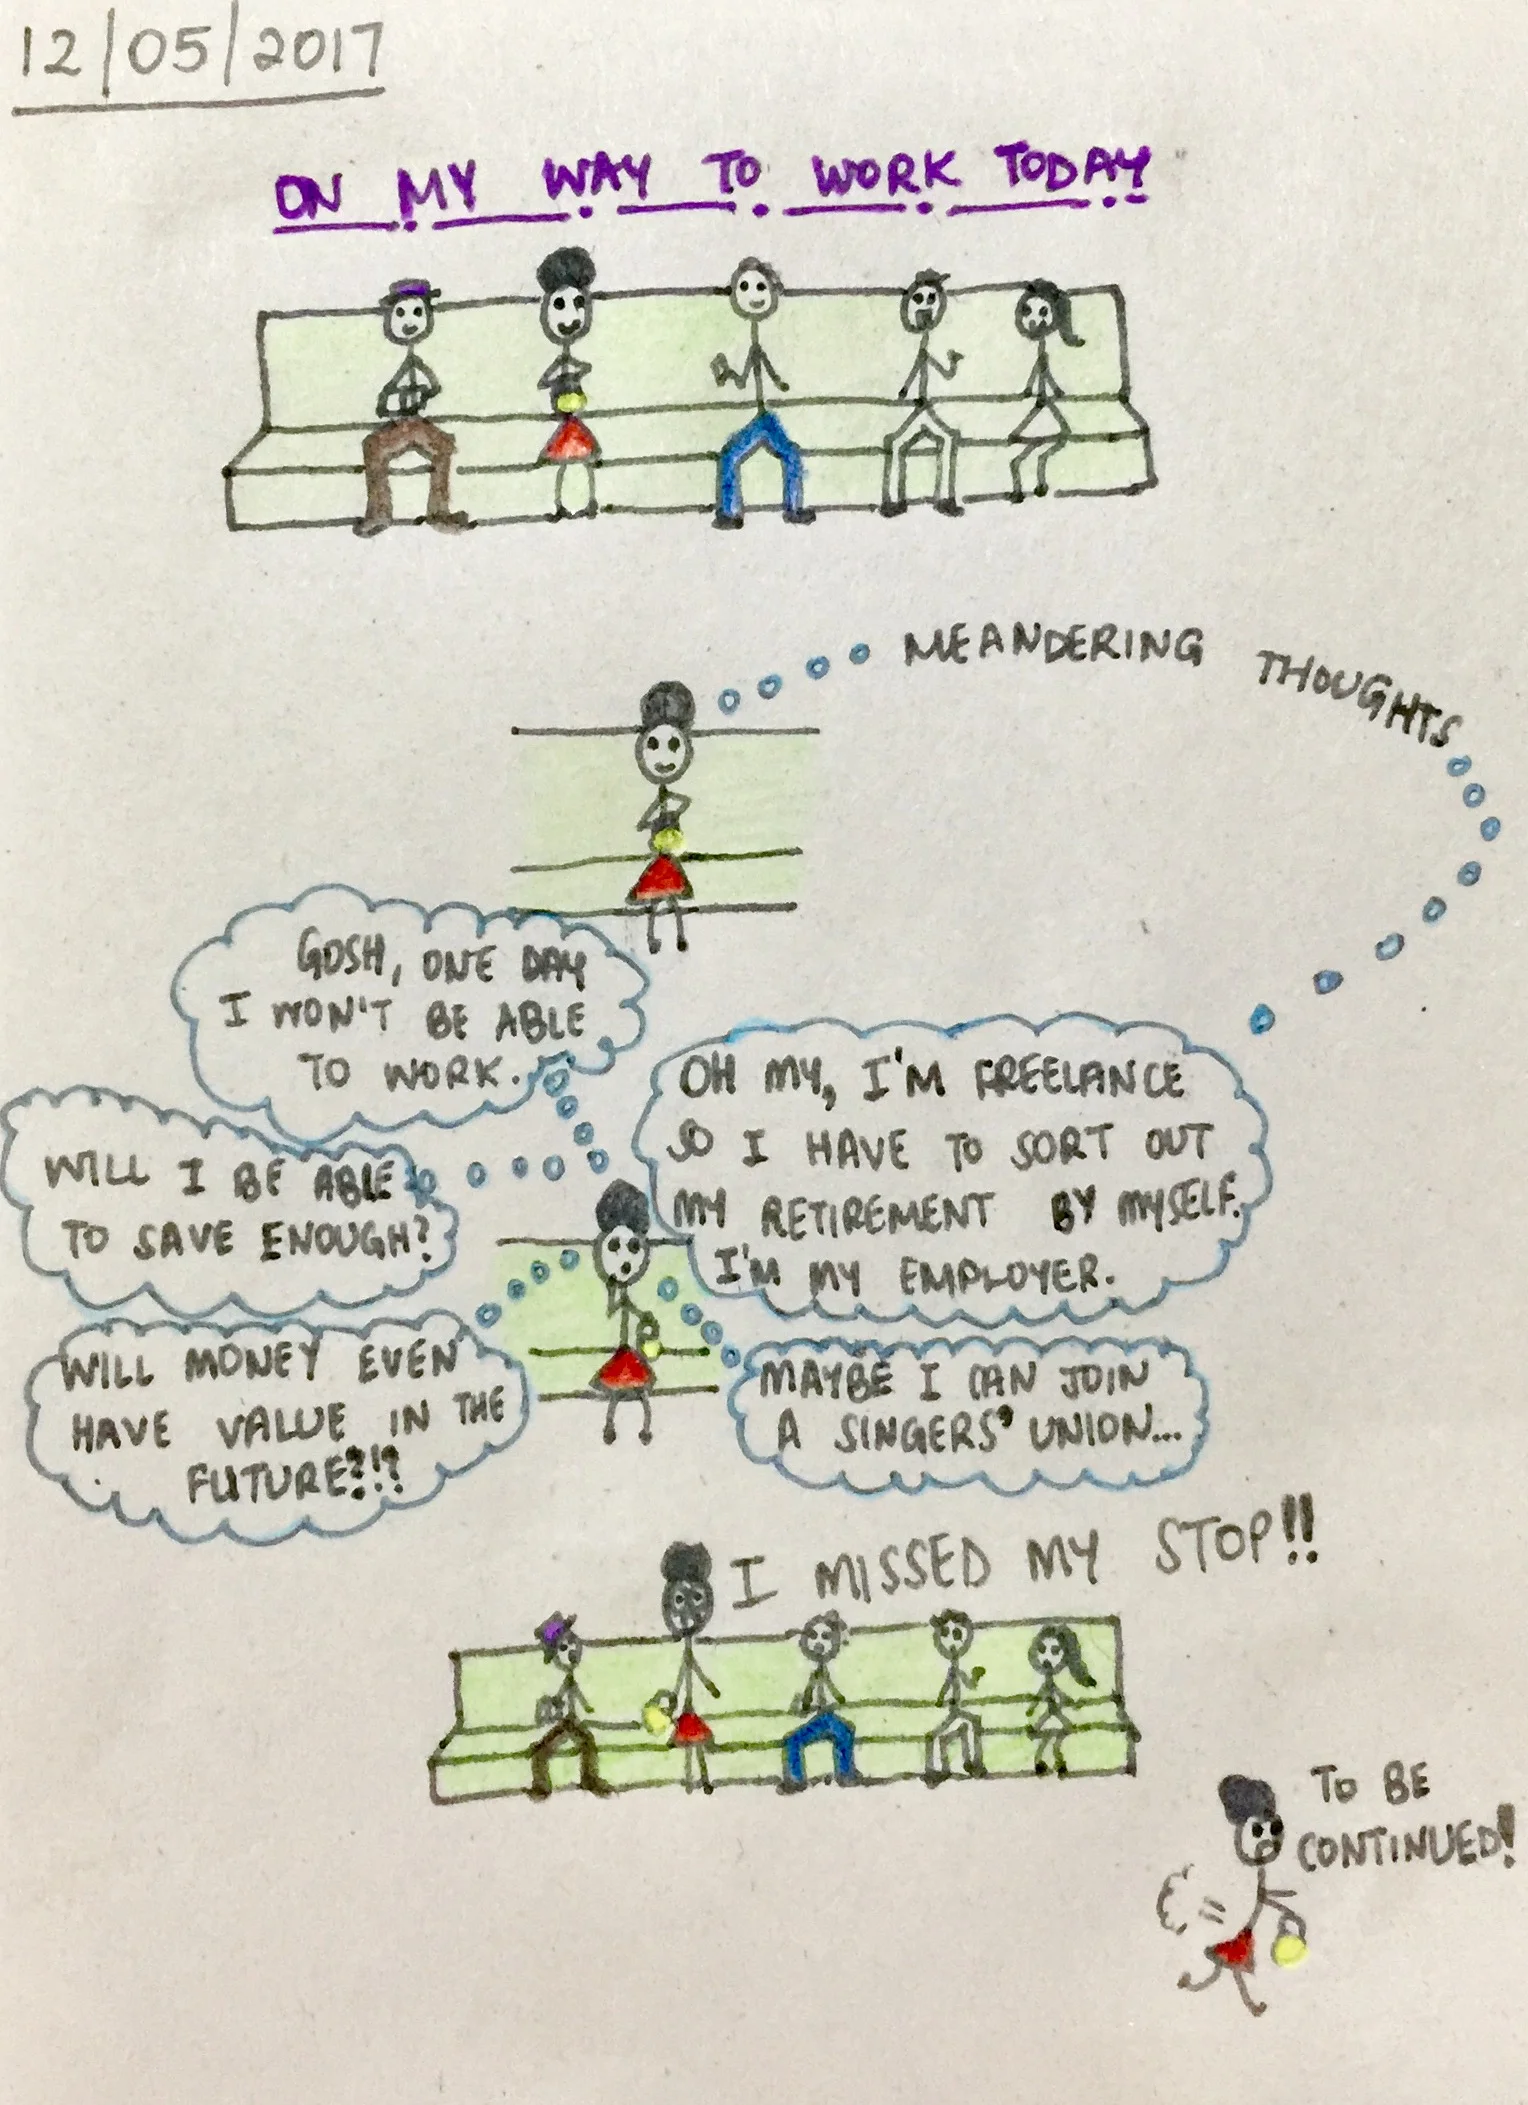 12/05/2017
ON MY WAY TO WORK TODAY
MEANDERING THOUGHTS
GOSH, ONE DAY
I WON'T BE ABLE
TO WORK.
OH MY, I'M FREELANCE
SO I HAVE TO SORT OUT
MY RETIREMENT BY MYSELF.
I'M MY EMPLOYER.
WILL I BE ABLE
TO SAVE ENOUGH?
WILL MONEY EVEN
HAVE VALUE IN THE
FUTURE?!?
MAYBE I CAN JOIN
A SINGERS' UNION...
I MISSED MY STOP!!
TO BE
CONTINUED!